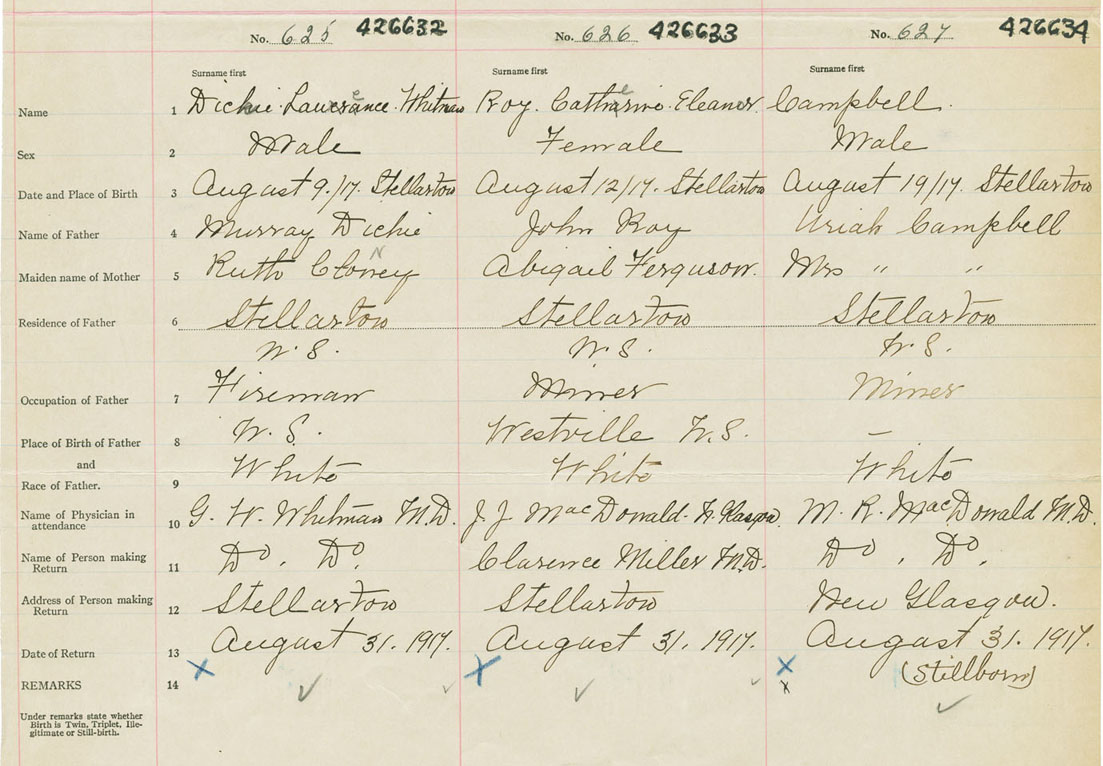 No. 625 426632 No. 626 426633 No. 627 426634
Surname first Surname first Surname first
Name 1 Dickie Lawrence Whitman Roy. Catherine Eleanor Campbell.
Sex 2 Male Female Male
Date and Place of Birth 3 August 9/17. Stellarton August 12/17. Stellarton August 19/17. Stellarton
Name of Father 4 Murray Dickie John Roy Uriah Campbell
Maiden name of Mother 5 Ruth Abigail Ferguson. Mrs " "
Residence of Father 6 Stellarton Stellarton Stellarton
N.S. N.S. N.S.
Occupation of Father 7 Fireman Miner Miner
Place of Birth of Father 8 N.S. Westville N.S. –
and
Race of Father. 9 White White White
Name of Physician in
attendance 10 G. W. Whitman M.D. J. J. MacDonald. N. Glasgow. M. R. MacDonald M.D.
Name of Person making
Return 11 Do. Do. Clarence Miller M.D. Do. Do.
Address of Person making
Return 12 Stellarton Stellarton New Glasgow.
Date of Return 13 August 31. 1917. August 31. 1917. August 31. 1917.
REMARKS 14 (Stillborn)
Under remarks state whether
Birth is Twin, Triplet, Ille-
gitimate or Still-birth.